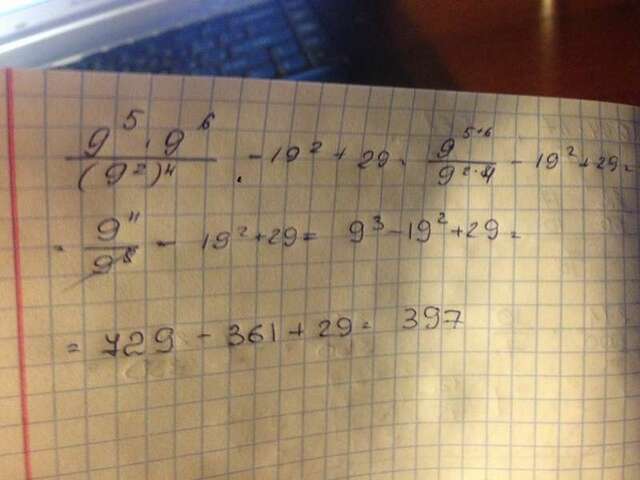 9⁵·9⁶/(9²)⁴ - 19² + 29 = 9⁵⁺⁶/9²·⁴ - 19² + 29 =
= 9¹¹/9⁸ - 19² + 29 = 9³ - 19² + 29 =
= 729 - 361 + 29 = 397